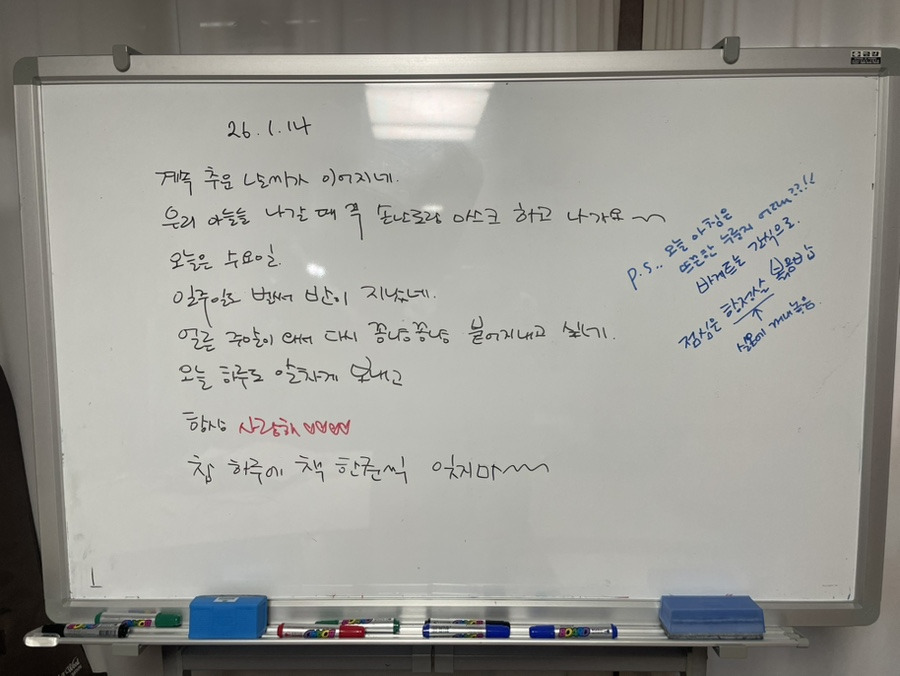 26.1.14
계속 추운 날씨가 이어지네.
우리 아들들 나갈 때 꼭 손난로랑 마스크 하고 나가요~~
오늘은 수요일.
일주일도 벌써 반이 지났네.
얼른 주말이 와서 다시 꽁냥꽁냥 붙어지내고 싶네.
오늘 하루도 알차게 보내고
항상 사랑해 ♡♡♡♡
참 하루에 책 한권씩 잊지마~~~
P.S.. 오늘 아침은
뜨끈한 누룽지 어때??!!
바게트는 간식으로.
점심은 항정살 볶음밥
↑
실온에 꺼내놓음.